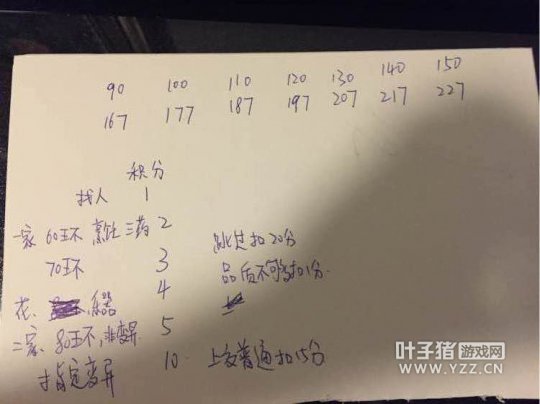 90 100 110 120 130 140 150
167 177 187 197 207 217 227
积分
找人 1
一家 60环 烹饪 三药 2 跳过扣20分
70环 3 品质不够扣1分
花 乐器 4
二家 80环, 非变异 5
指定变异 10 上交普通扣15分
叶子猪游戏网
WWW.YZZ.CN